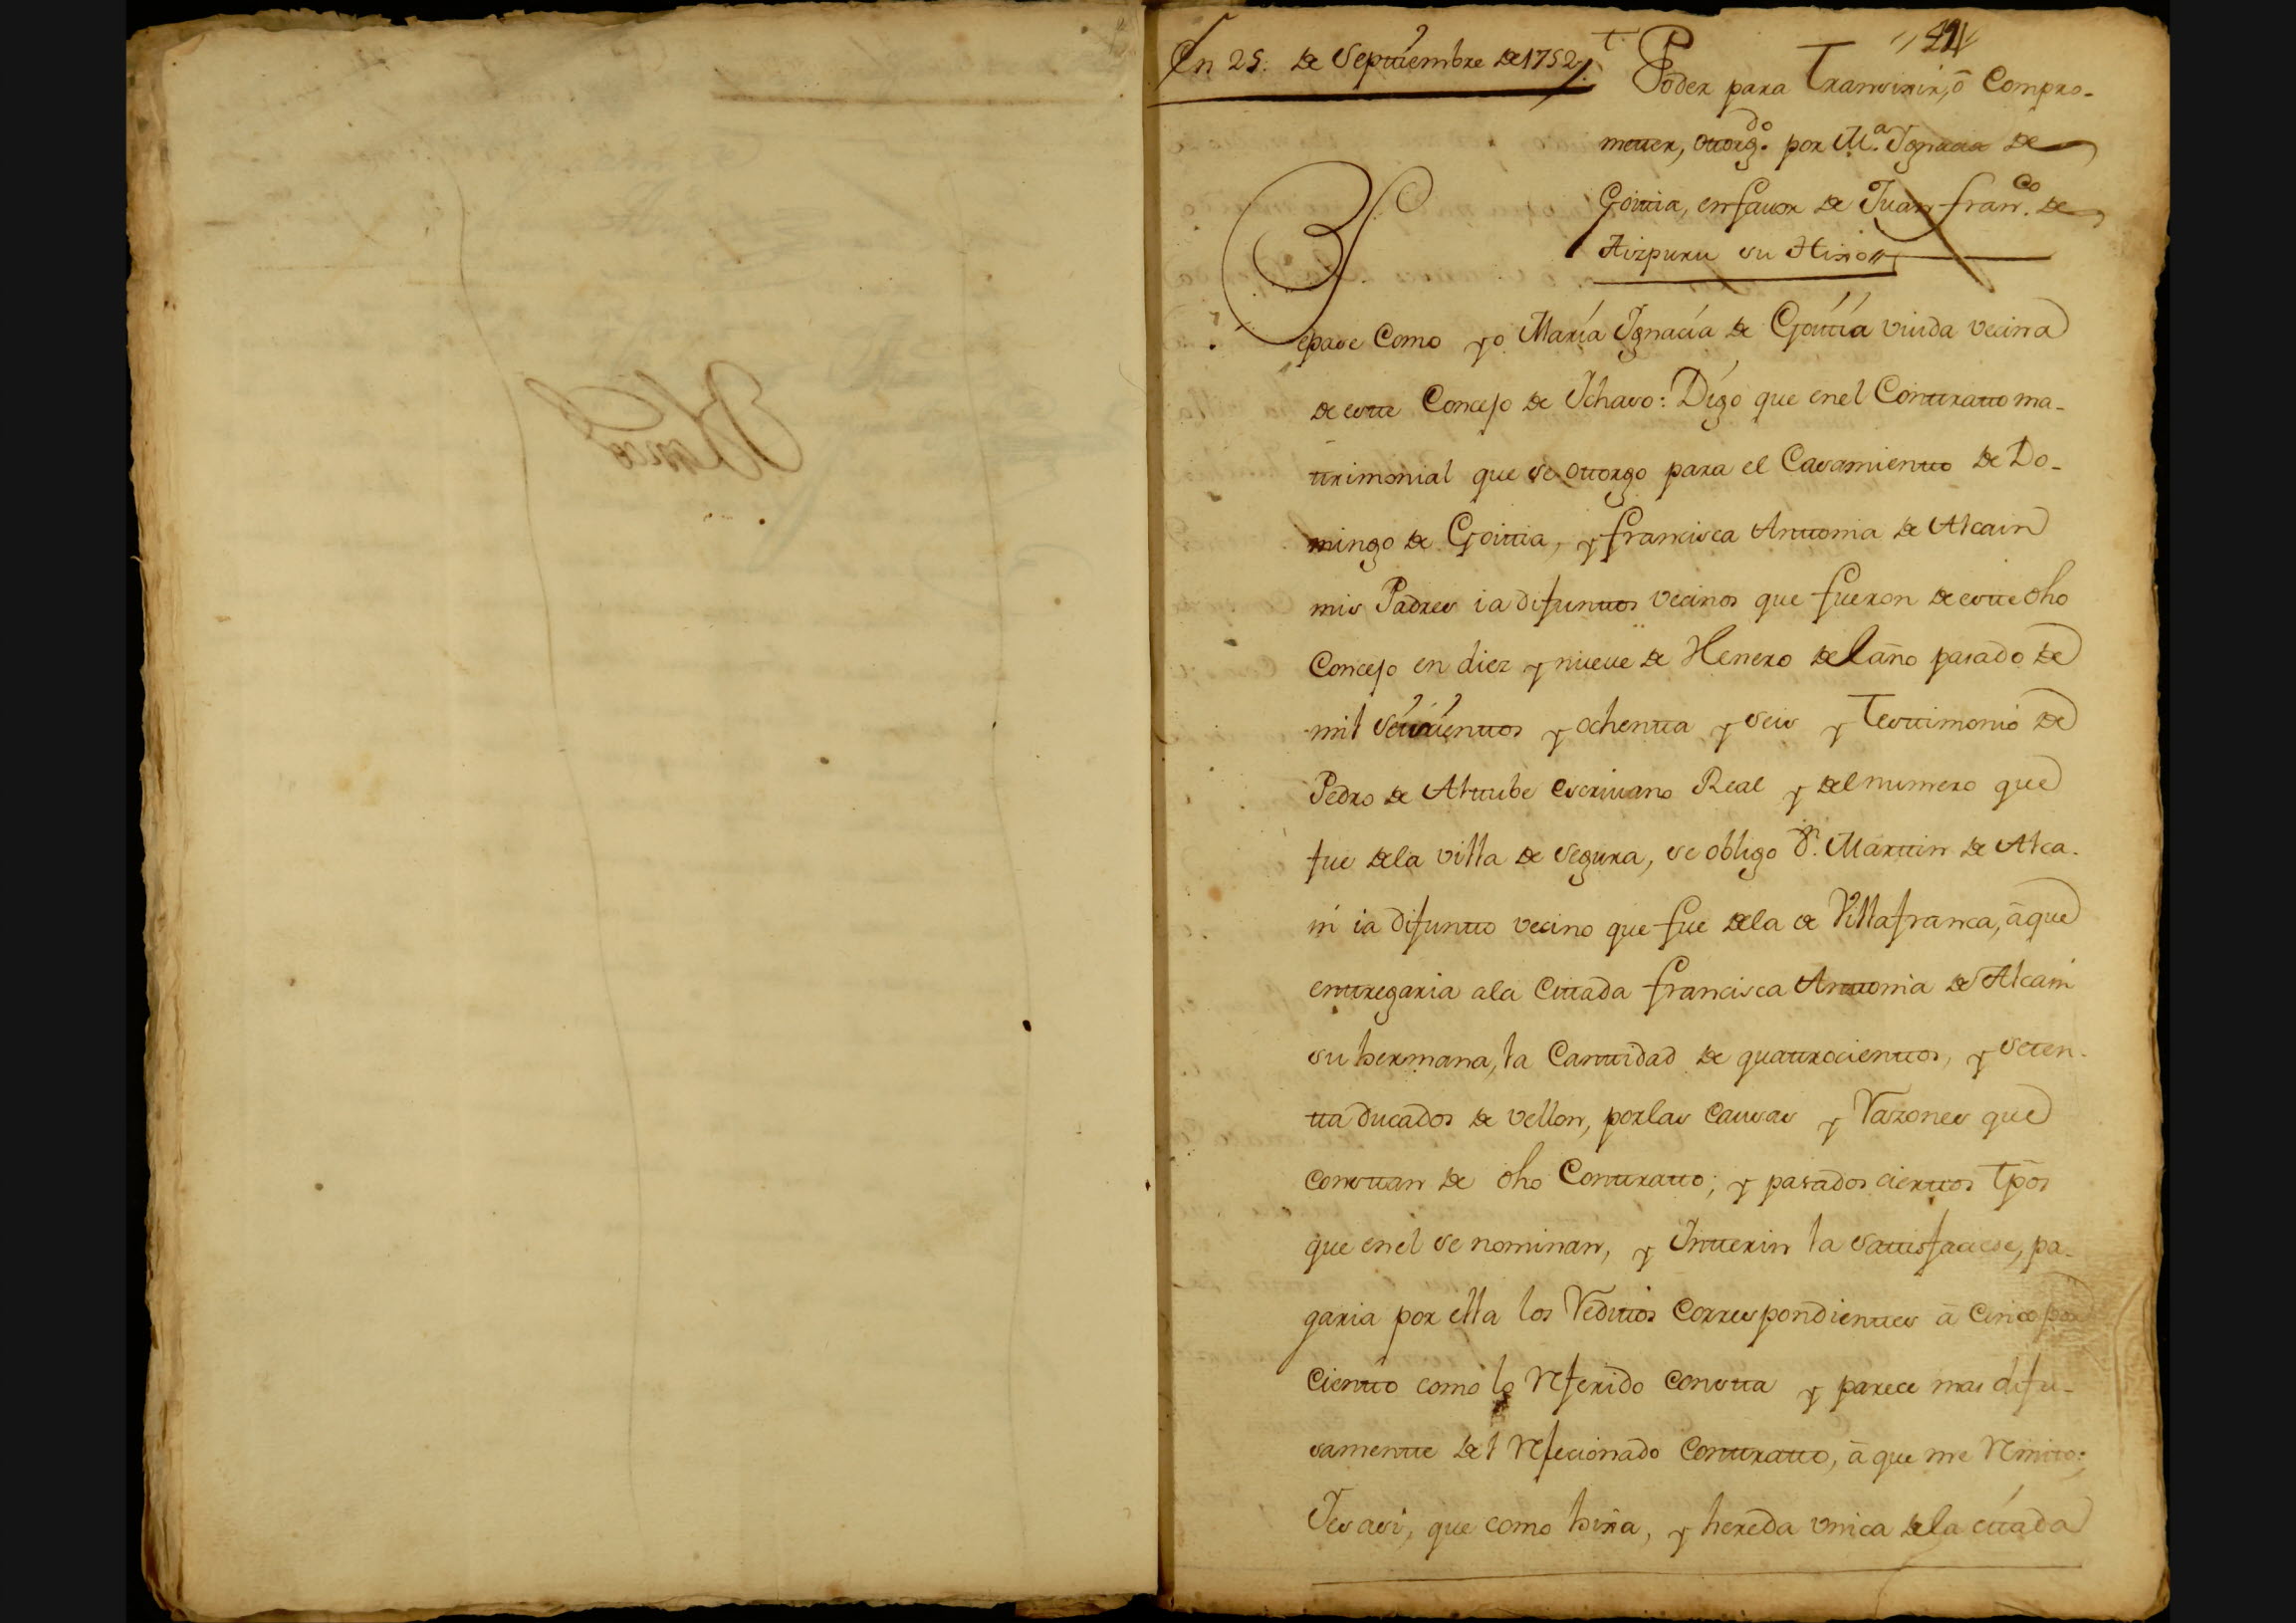 Blanco
En 25. de Septiembre de 1752
t. 41
Poder para Transixir, ô Compro-
metter, ottorg.do por M.a Ignacia de
Goittia, en favor de Juan Fran.co de
Aizpuru su Hixo
Sepase Como yo María Ignacía de Goíttía viuda vecina
de estte Concejo de Ichaso: Dígo que enel Conttratto ma-
ttrimonial que se ottorgo para el Casamientto de Do-
mingo de Goittia, y francisca Anttonia de Alcain
mis Padres ia difunttos vecinos que fueron de estte dho
Concejo en diez y nueve de Henero del año pasado de
mil y ochentta y seis y Testtimonio de
Pedro de Alttube escrivano Real y del numero que
fue dela villa de Segura, se obligo d.n Marttin de Alca-
in ia difuntto vecino que fue dela de Villafranca, â que
enttregaria ala Cittada francisca Anttonia de Alcain
su hermana, la Canttidad de quattrocienttos, y seten-
tta ducados de vellon, porlas causas y Razones que
consttan de dho Conttratto; y pasados cierttos tpõs
que enel se nominan, y Intterin la sattisfaciese, pa-
garia por ella los Redittos Correspondienttes â Cinco por
Cientto como lo Referido constta y parece mas difu-
samentte del Refecionado Conttratto, â que me Remitto:
Ies asi, que como hixa, y hereda vnica dela cittada